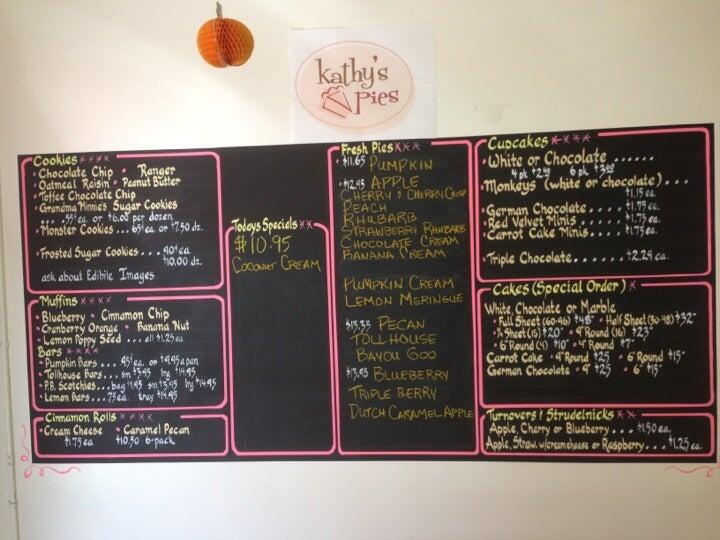 kathy's
Pies
Cookies
Chocolate Chip • Ranger
Oatmeal Raisin • Peanut Butter
Toffee Chocolate Chip
Grandma Minnie's Sugar Cookies
.55¢ ea. or $6.00 per dozen
Monster Cookies... 65¢ ea. or $7.50 dz.
Frosted Sugar Cookies... .90¢ ea
$10.00 dz.
ask about Edibile Images
Muffins
Blueberry • Cinnamon Chip
Cranberry Orange • Banana Nut
Lemon Poppy Seed... all $1.25 ea.
Bars
Pumpkin Bars... .95¢ ea. or $9.95 a pan
Tollhouse Bars... sm $3.95 lrg $14.95
P.B. Scotchies... bag $1.95 sm $3.95 lrg $14.95
Lemon Bars... .75 ea. tray $14.95
Cinnamon Rolls
Cream Cheese • Caramel Pecan
$1.75 ea. $10.50 6-pack
Todays Specials
$10.95
Coconut Cream
Fresh Pies
$11.65 Pumpkin
$12.95 Apple
Cherry & Cherry Crisp
Peach
Rhubarb
Strawberry Rhubarb
Chocolate Cream
Banana Cream
Pumpkin Cream
Lemon Meringue
$13.35 Pecan
Toll House
Bayou Goo
$13.95 Blueberry
Triple Berry
Dutch Caramel Apple
Cupcakes
White or Chocolate......
4 pk 6 pk
Monkeys (white or chocolate)...
$1.15 ea.
German Chocolate.... $1.75 ea.
Red Velvet Minis.... $1.75 ea.
Carrot Cake Minis.... $1.75 ea.
Triple Chocolate...... $2.29 ea.
Cakes (Special Order)
White, Chocolate or Marble
Full Sheet (60-96) $48 • Half Sheet (30-48) $32
¼ Sheet (15) $20 • 9" Round (16) $23
6" Round (4) $10 • 4" Round $7
Carrot Cake • 9" Round $25 • 6" Round $15
German Chocolate • 9" $25 • 6" $15
Turnovers & Strudelnicks
Apple, Cherry or Blueberry... $1.50 ea.
Apple, Straw. w/creamcheese or Raspberry... $1.25 ea.